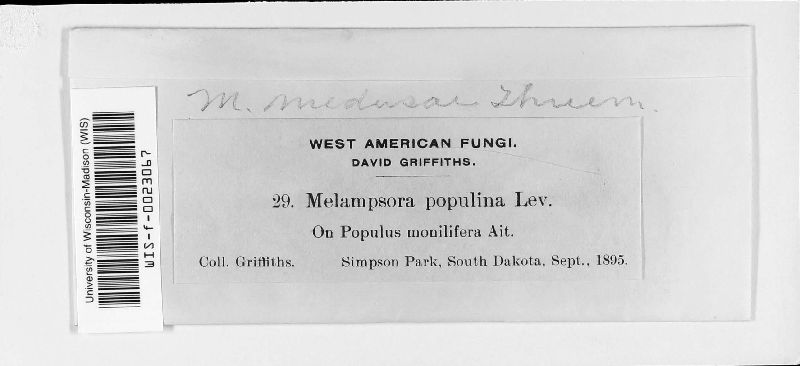 M. medusae Thuem.
WEST AMERICAN FUNGI.
DAVID GRIFFITHS.
29. Melampsora populina Lev.
On Populus monilifera Ait.
Coll. Griffiths. Simpson Park, South Dakota, Sept., 1895.
University of Wisconsin-Madison (WIS)
WIS-f-0023067